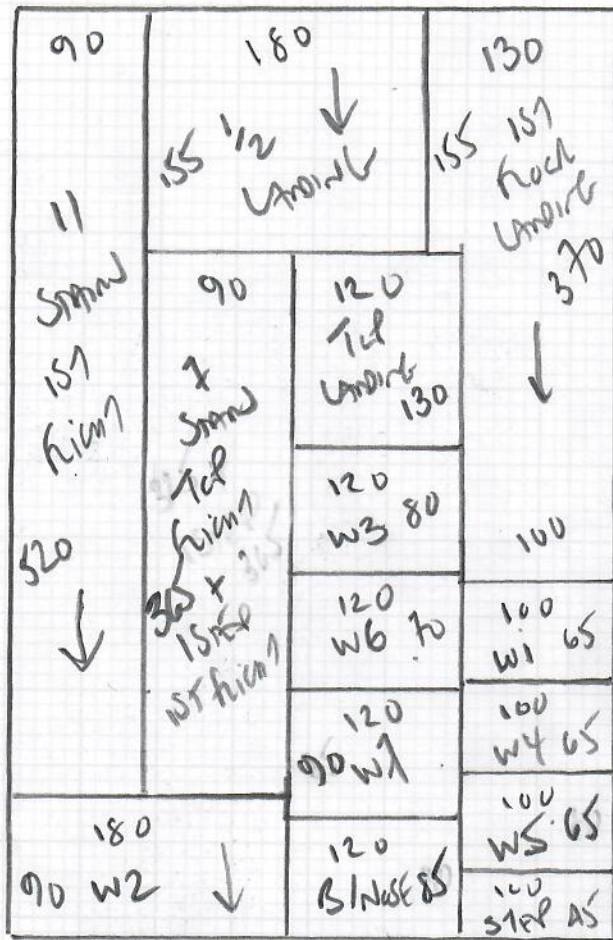 90
11
STAIRS
1ST
FLIGHT
520
180
155 1/2
LANDING
130
155 1ST
FLOOR
LANDING
370
100
90
7
STAIRS
TOP
FLIGHT
365 +
1 STEP
1ST FLIGHT
120
TOP
LANDING
130
120
W3 80
120
W6 70
120
90 W7
120
B/NOSE 85
100
W1 65
100
W4 65
100
W5 65
100
STEP 45
180
90 W2